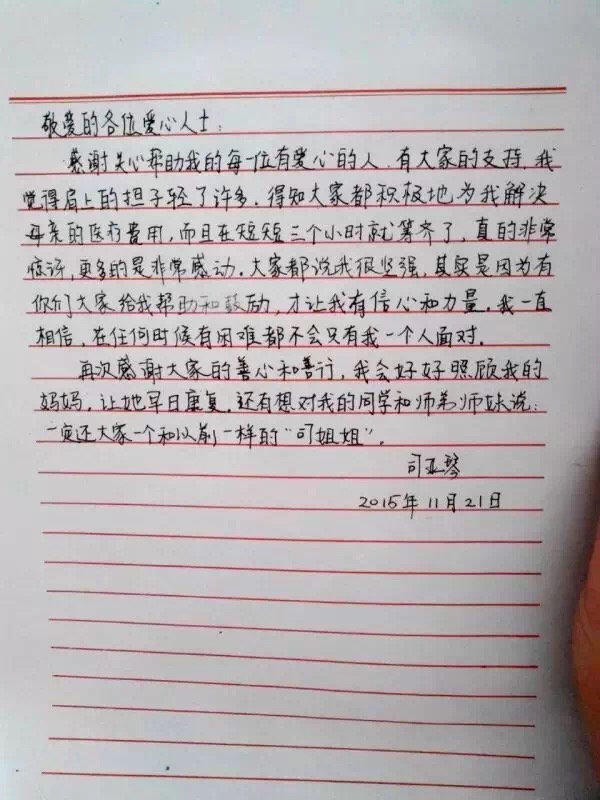 敬爱的各位爱心人士：
感谢关心帮助我的每一位有爱心的人．有大家的支持，我
觉得肩上的担子轻了许多．得知大家都积极地为我解决
母亲的医疗费用，而且在短短三个小时就筹齐了，真的非常
惊讶，更多的是非常感动．大家都说我很坚强，其实是因为有
你们大家给我帮助和鼓励，才让我有信心和力量．我一直
相信，在任何时候有困难都不会只有我一个人面对．
再次感谢大家的善心和善行，我会好好照顾我的
妈妈，让她早日康复．还有想对我的同学和师弟师妹说：
一定还大家一个和以前一样的“司姐姐”．
司亚琴
2015年11月21日